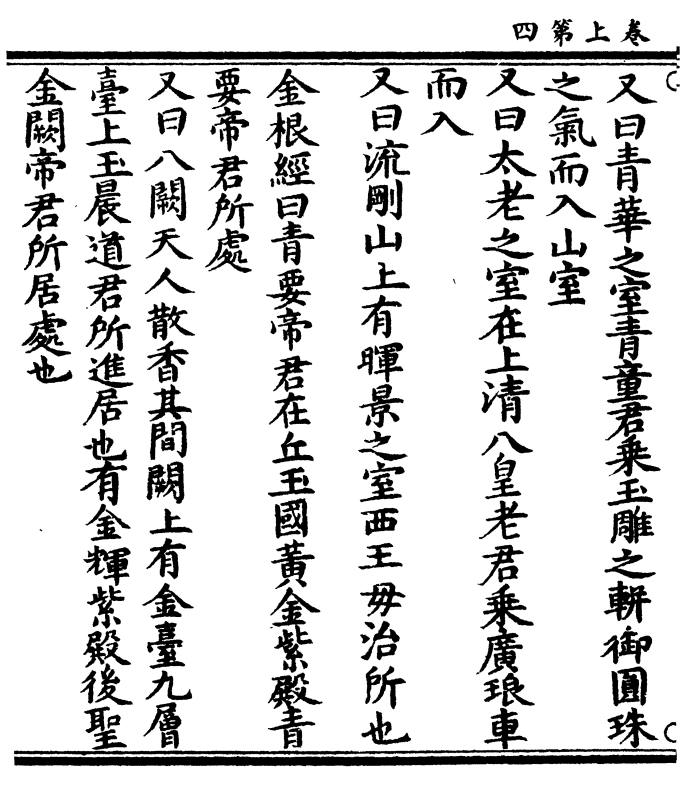 卷上第四
又曰青華之室青童君乘玉雕之軿御圓珠
之氣而入山室
又曰太老之室在上清八皇老君乘廣琅車
而入
又曰流剛山上有暉景之室西王毋治所也
金根經曰青要帝君在丘玉國黃金紫殿青
要帝君所處
又曰八闕天人散香其間闕上有金臺九層
臺上玉晨道君所進居也有金輝紫殿後聖
金闕帝君所居處也